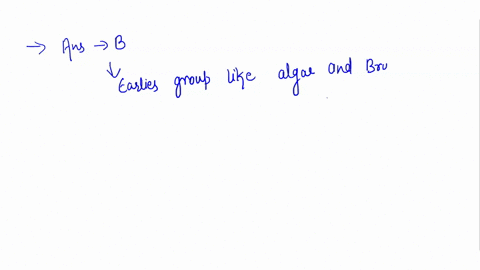 → Ans → B
↓ Earlies group like algae and Bru